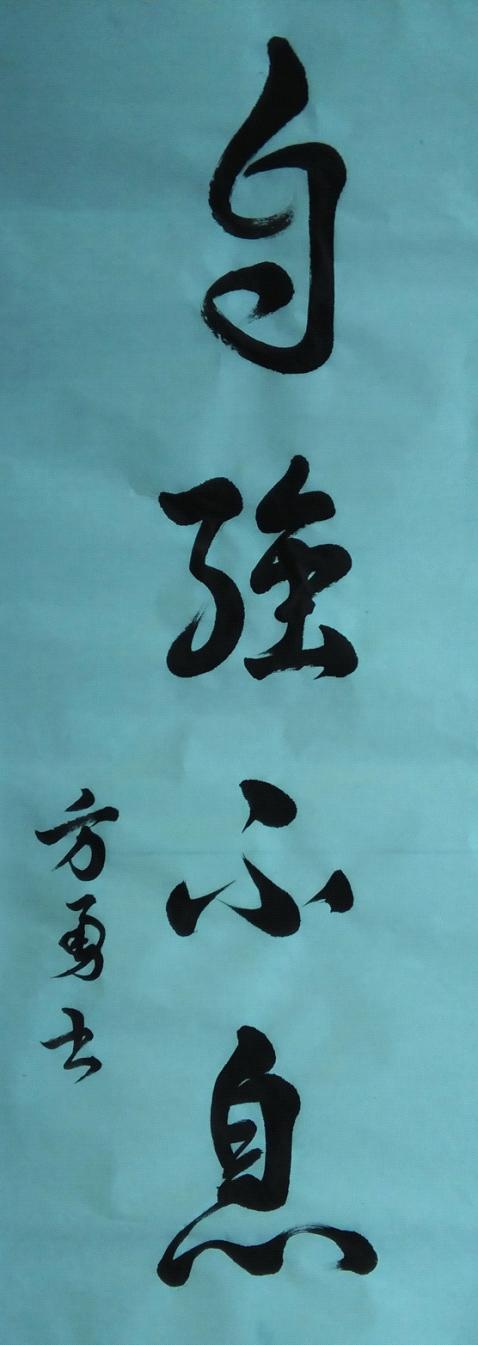 自強不息
方勇士